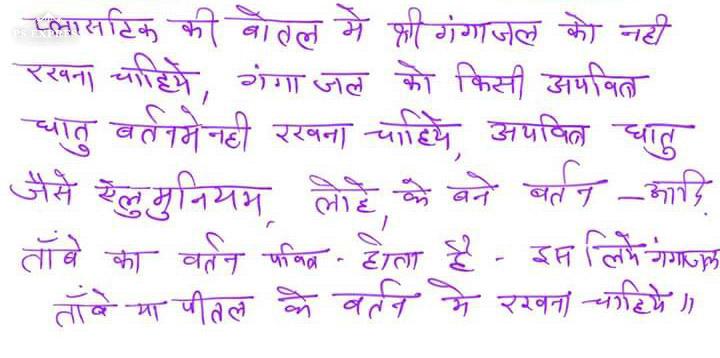 प्लासटिक की बोतल में श्री गंगाजल को नही
रखना चाहिये, गंगा जल को किसी अपवित्र
धातु बर्तनमे नही रखना चाहिये, अपवित्र धातु
जैसे ऐलुमुनियम, लोहे, के बने बर्तन - आदि.
ताँबे का बर्तन पवित्र - होता है - इस लिये गंगाजल
ताँबे या पीतल के बर्तन मे रखना चाहिये ॥